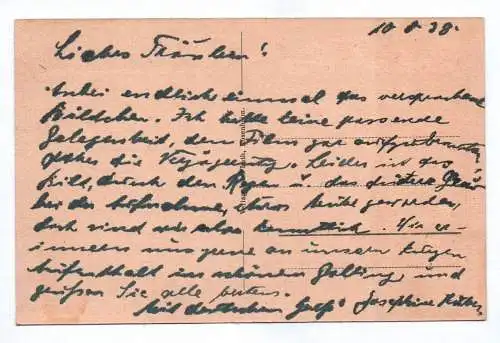 10.8.38.
Liebes Fräulein!
Anbei endlich einmal das versprochene
Bildchen. Ich hatte keine passende
Gelegenheit, den Film zu
daher die Verzögerung. Leider ist das
Bild, durch den Regen u. das düstere
bei der Aufnahme, etwas trübe geworden,
doch sind wir alle kenntlich. Wir er-
innern uns gerne an unsern kurzen
Aufenthalt im schönen Golling und
grüßen Sie alle bestens.
Mit deutschem Gruß Josephine